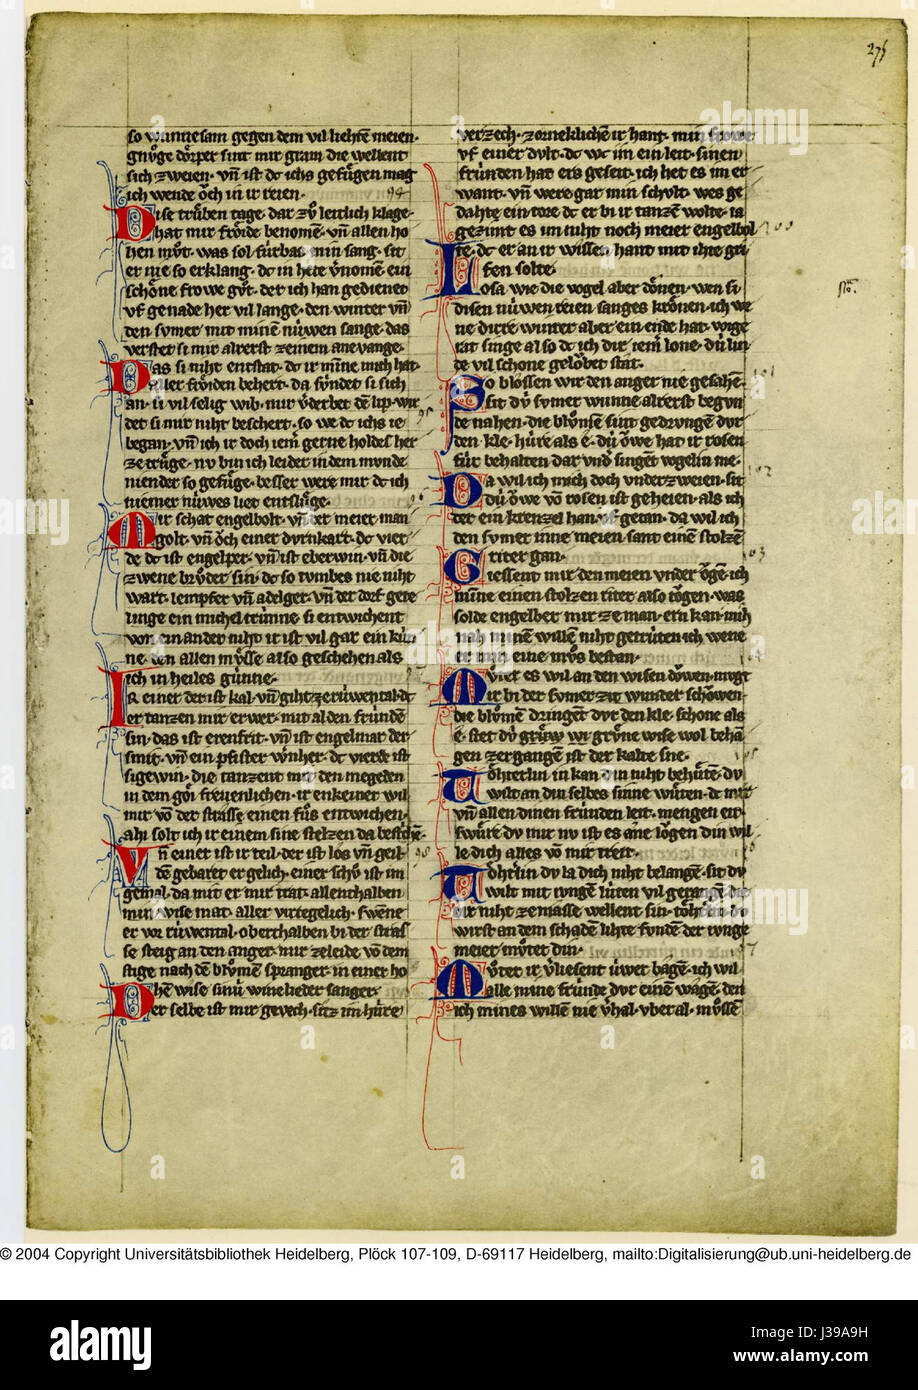 275
so wunnesam gegen dem vil liehten meien·
gnůge dörper sint mir gram die wellent
sich zweien· vn̄ ist dc ichs gefůgen mag
ich wende ŏch in ir reien·
94
Dise trůben tage· dar zů leitlich klage·
hat mir frŏide benomē· vn̄ allen ho
hen můt· was sol fúrbas min sang· sit
er nie so erklang· dc in hete
schŏne frowe gůt· der ich han gedienet
vf genade her vil lange· den winter vn̄
den sumer mit minē núwen sange· das
verstet si mir alrerst zeinem ane vange·
Das si niht entstat· dc ir minne mich hat·
aller frŏiden behert· da
an· ir vil selig wib· nur
det si mir niht beschert· so we dc ichs ie
95
began· vn̄ ich ir doch iem̄ gerne holdes her
ze trůge· nv bin ich leider in dem munde
niender so gefůge· besser were mir dc ich
niemer núwes liet entslůge·
96
Mir schat engelbolt· vn̄ der meier man
golt· vn̄ ŏch einer dvrnkart· dc vier
de dc ist engelper· vn̄ ist eberwin· vn̄ die
zwene brůder sin· dc so tumbes nie niht
wart· lempfer vn̄ adelger· vn̄ der dorf gete
linge ein michel trúnne· si entwichent
vor ein ander niht ir ist vil gar ein kún
ne· den allen můsse also geschehen als
ich in heiles gúnne·
Ir einer der ist kal· vn̄ giht ze rúwental· dc
er tanzen mir erwer· mit al den frúndē
sin· das ist erenfrit· vn̄ ist engelmar der
smit· vn̄ ein pfister wŏnher· dc vierde ist
sigewin· die tanzent mit den megeden
in dem gŏi freuenlichen· ir enkeiner wil
mir vō der strasse einen fůs entwichen·
ahi solt ich ir einem sine stelzen da
98
Vn̄ einer ist ir teil· der ist los vn̄ geil·
dē gebaret ergelich· einer schů ist im
gemal· da mit er mir trat· allenthalben
min wise mat· aller virtegelich·
er vor rúwental· oberthalben bi der stras
se steig an den anger· mir zeleide vō dem
stige nach dē blůmen spranger· in einer ho
hen wise sinú winelieder sanger·
Der selbe ist mir gevech· sit
verzech· zorneklichē ir hant· min frowe
vf einer dvlt· dc wc im ein leit· sinen
frúnden hat ers geseit· ich het es im er
want· vn̄ were gar min schvlt· wes ge
dahte ein tore dc er bi ir tanzē wolte· ia
gezimt es im niht noch meier engelbol
te· dc er an ir wissen hant mit ihte gri
fen solte·
100
Losa wie die vogel aber dŏnen· wen si
disen núwen reien sanges krŏnen· ich we
ne dirre winter aber ein ende hat· wige
rat singe also dc ich dir iem̄ lone· dú lin
de vil schone gelŏbet stat·
101
So blŏssen wir den anger nie gesahē·
sit dv́ svmer wunne alrerst begvn
de nahen· die blůmen sint gedrungen dvr
den kle· húre als e· dú ŏwe hat ir rosen
fúr behalten dar vnd̄ singent vogelin me·
102
Da wil ich mich doch vnder zweien· sit
dú ŏwe vō rosen ist geheien· als ich
der ein krenzel han vf getan· da wil ich
den svmer inne meien· sant einē stolzē
riter gan·
103
Giessent mir den meien vnder ŏgē· ich
minne einen stolzen riter also tŏgen· was
solde engelber mir ze man· ern kan mih
nah minē willē niht getrúten· ich wene
er min eine můs bestan·
104
Můter es wil an den wisen
wir bi der svmer zit wunder schŏwen·
die blůmē dringēt dvr den kle· schone als
e· stet dv́ grůne wise wol behā
gen zergangē ist der kalte sne·
105
Tohterlin in kan din niht behůtē· dv
wilt an din selbes sinne wůten· dc mir
vn̄ allen dinen frúnden leit· mengen eit
swůre dv mir nv ist es ane lŏgen din wil
le dich alles vō mir treit·
Tohterlin dv la dich niht belangē· sit dv
wilt mit
dir niht ze masse wellent sin·
wirst an dem schadē
meier můter din·
107
Můter ir v̄liesent úwer bagē· ich wil
alle mine frúnde dvr einē wagē· den
ich mines willē nie v̄hal· vberal· můssē
© 2004 Copyright Universitätsbibliothek Heidelberg, Plöck 107-109, D-69117 Heidelberg, mailto:Digitalisierung@ub.uni-heidelberg.de
alamy
Image ID: J39A9H
www.alamy.com